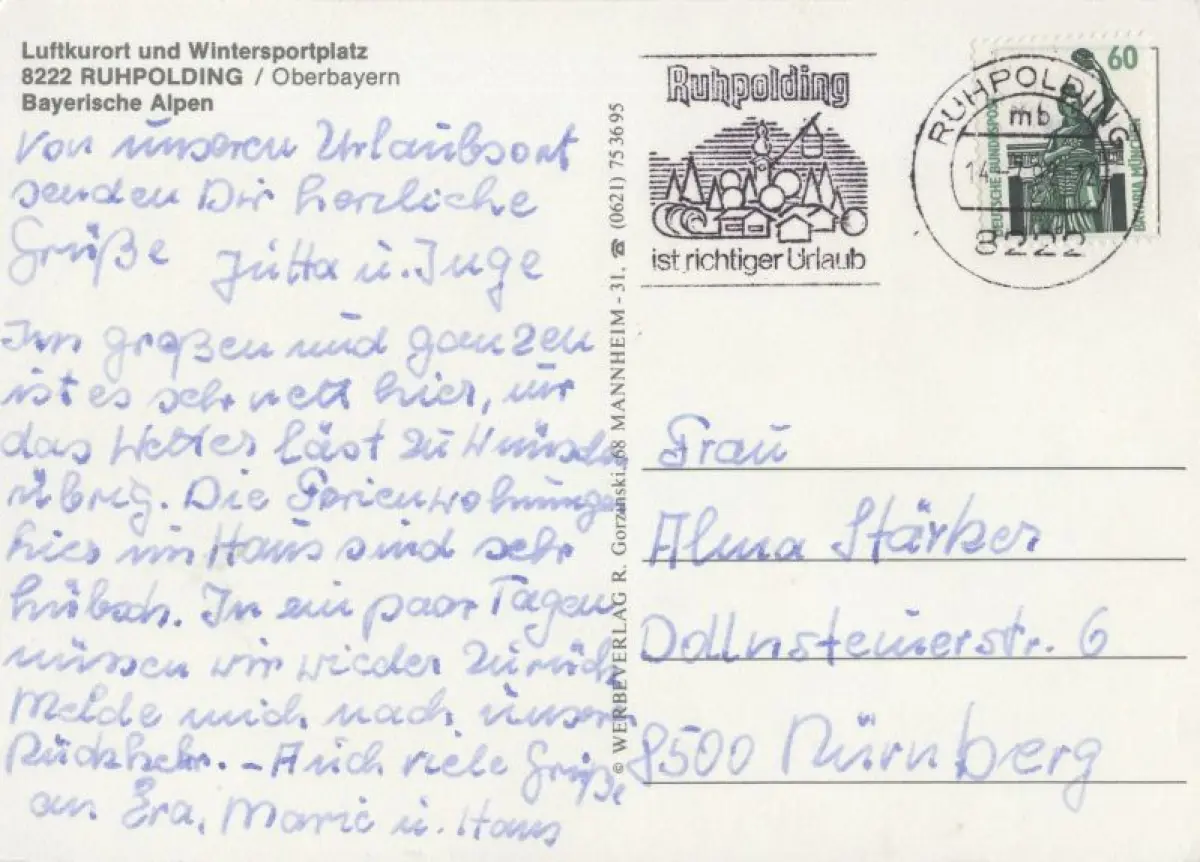 Luftkurort und Wintersportplatz
8222 RUHPOLDING / Oberbayern
Bayerische Alpen
Von unseren Urlaubsort
senden Dir herzliche
Grüße Jutta u. Inge
Im großen und ganzen
ist es sehr nett hier, nur
das Wetter läst zu wünschen
übrig. Die Ferienwohnungen
hier im Haus sind sehr
hübsch. In ein paar Tagen
müssen wir wieder zurück
Melde mich nach unserer
Rückkehr. – Auch viele Grüße
an Era, Marie u. Hans
© WERBEVERLAG R. Gorzinski, 68 MANNHEIM - 31, ☎ (0621) 75 36 95
Ruhpolding
ist richtiger Urlaub
RUHPOLDING
mb
14.
8222
60
DEUTSCHE BUNDESPOST
BAVARIA MÜNCHEN
Frau
Alma Stärker
Dollnsteinerstr. 6
8500 Nürnberg